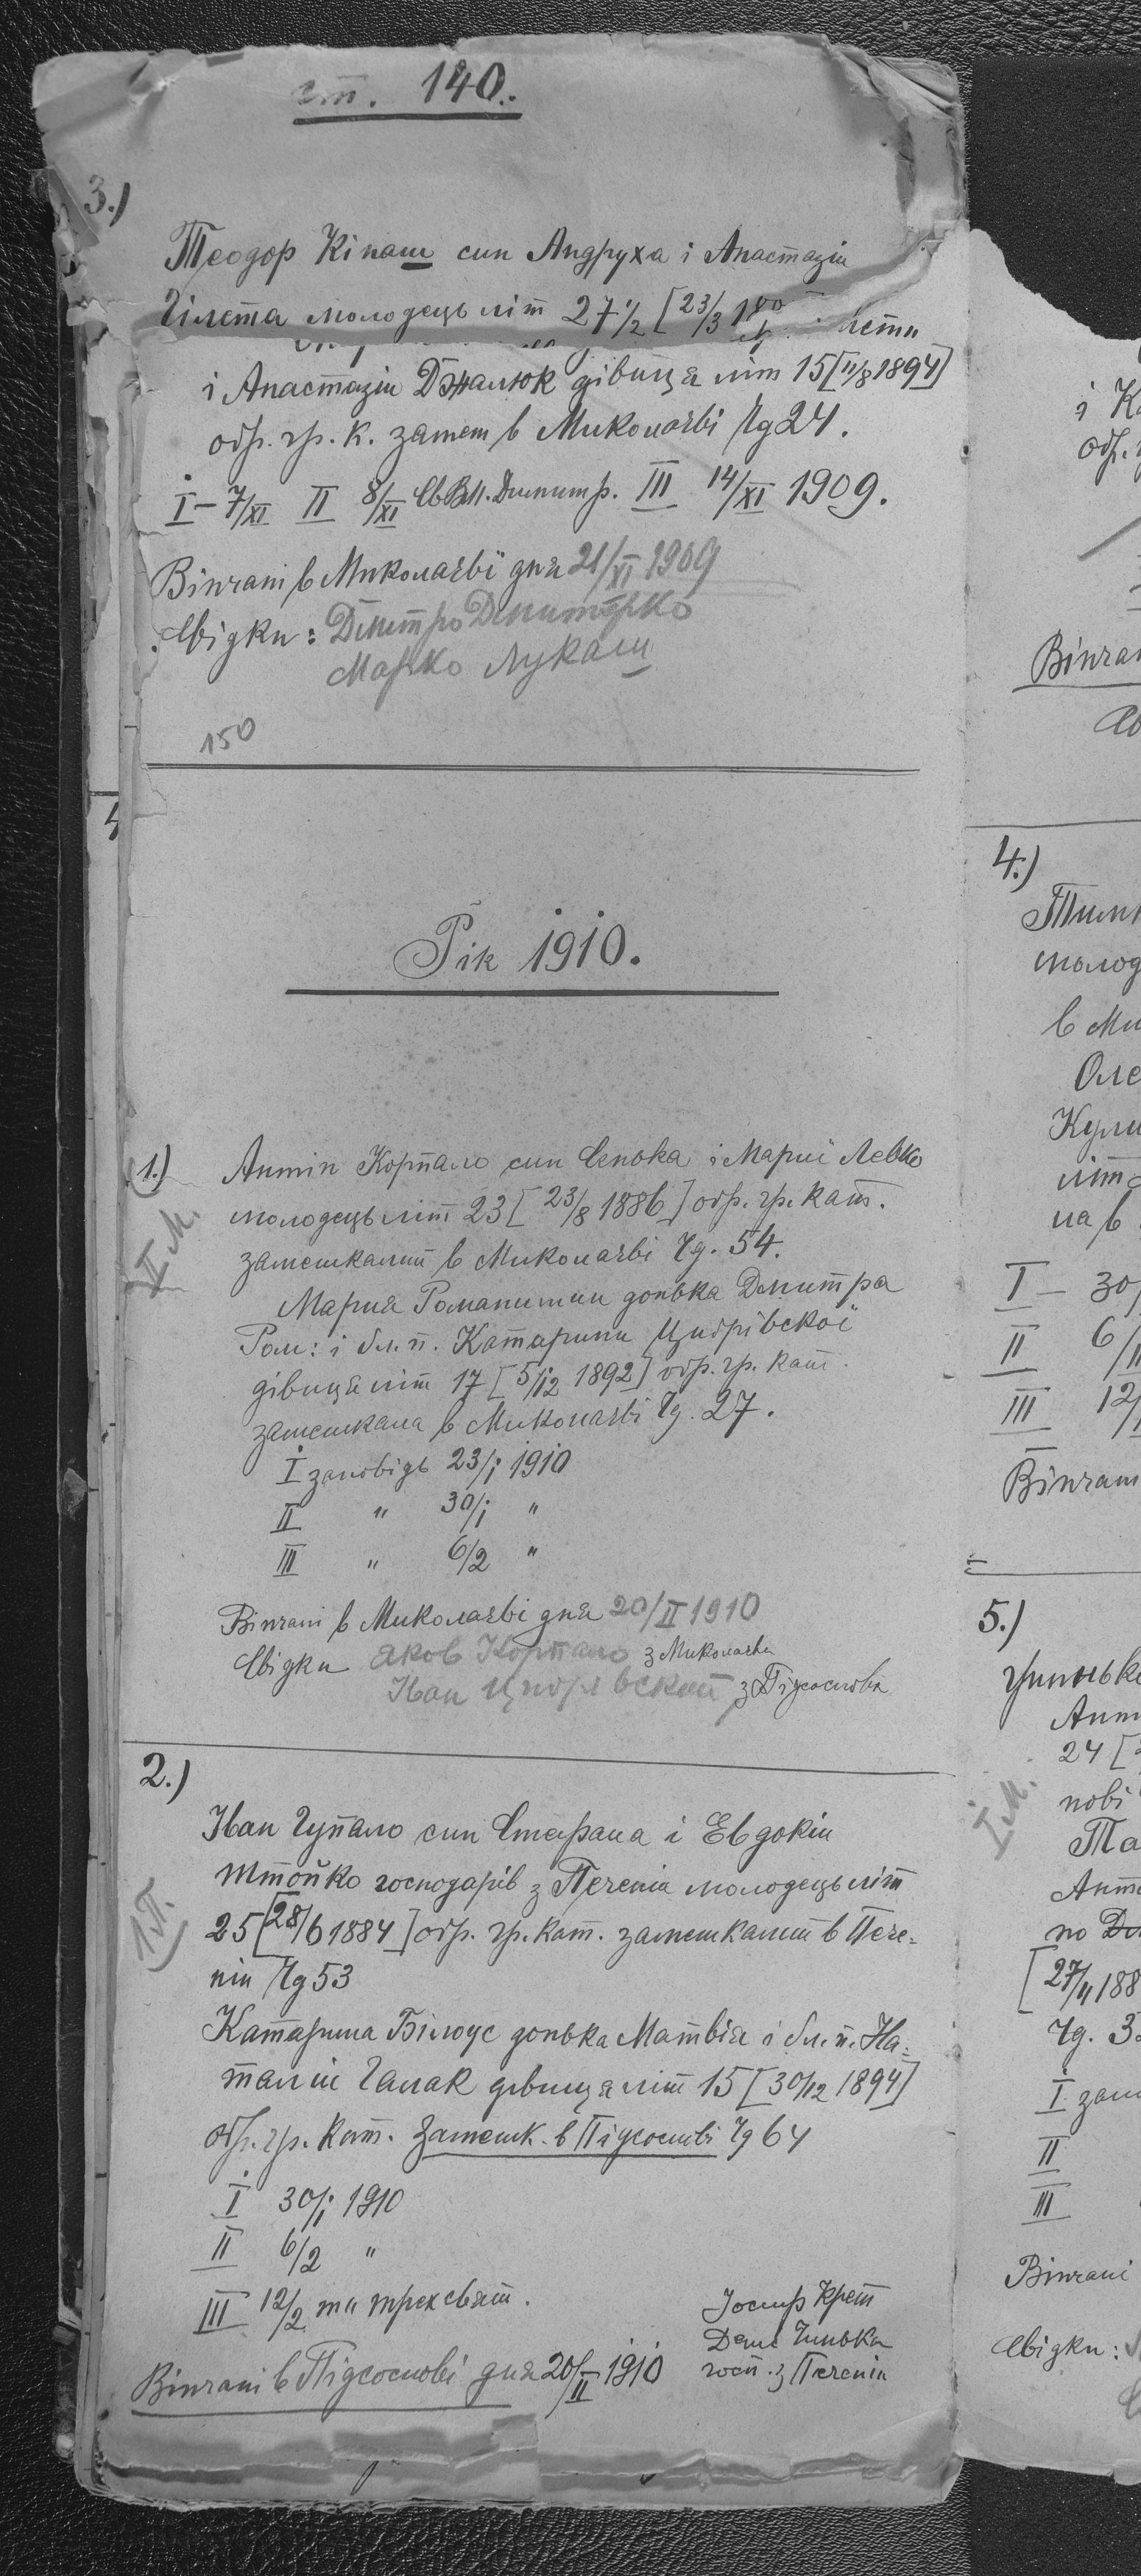 ст. 140.
3.)
Теодор Кінаш син Андруха і Анастазіи
Гілета молодець літ 27½ [23/3 18
і Анастазіи Джалюк дівиця літ 15 [11/8 1894]
обр. гр. к. замеш в Миколаєві Чд 24.
I – 7/XI II 8/XI Св Вм. Димитр. III 14/XI 1909.
Вінчані в Миколаєві дня 21/XI 1909
Свідки: Дмитро Дмитришко
Марко Лукаш
150
Рік 1910.
1.)
Антін Корпало син Сенька і Марії Левко
молодець літ 23 [23/8 1886] обр. гр. кат.
замешкалий в Миколаєві Чд. 54.
II М.
Мария Романишин донька Дмитра
Ром: і бл. п. Катарини Цибрівскої
дівиця літ 17 [5/12 1892] обр. гр. кат.
замешкала в Миколаєві Чд. 27.
I заповідь 23/1 1910
II " 30/1 "
III " 6/2 "
Вінчані в Миколаєві дня 20/II 1910
Свідки Яков Корпало з Миколаєва
Іван Цибрівский з Підсоснова
2.)
Іван Гупало син Стефана і Евдокіи
Штойко господарів з Печеніи молодець літ
25 [28/6 1884] обр. гр. кат. замешкалий в Пече-
ніи Чд 53
1П.
Катарина Білоус донька Матвія і бл. п. На-
таліи Галак дівиця літ 15 [30/12 1894]
обр. гр. кат. замешк. в Підсоснові Чд 64
I 30/1 1910
II 6/2 "
III 12/2 трех свят.
Вінчані в Підсоснові дня 20/II 1910
Йосиф Крет
госп. з Печеніи
і К
обр.
Вінчан
4.)
Тим
молод
в Ми
Оле
Кули
літ
ла в
I – 30/
II 6/
III 12/
Вінчани
5.)
Ант
24 [
нові
I М.
Та
Анто
по
[27/4 188
Чд. 3
I зап
II
III
Вінчані
Свідки: